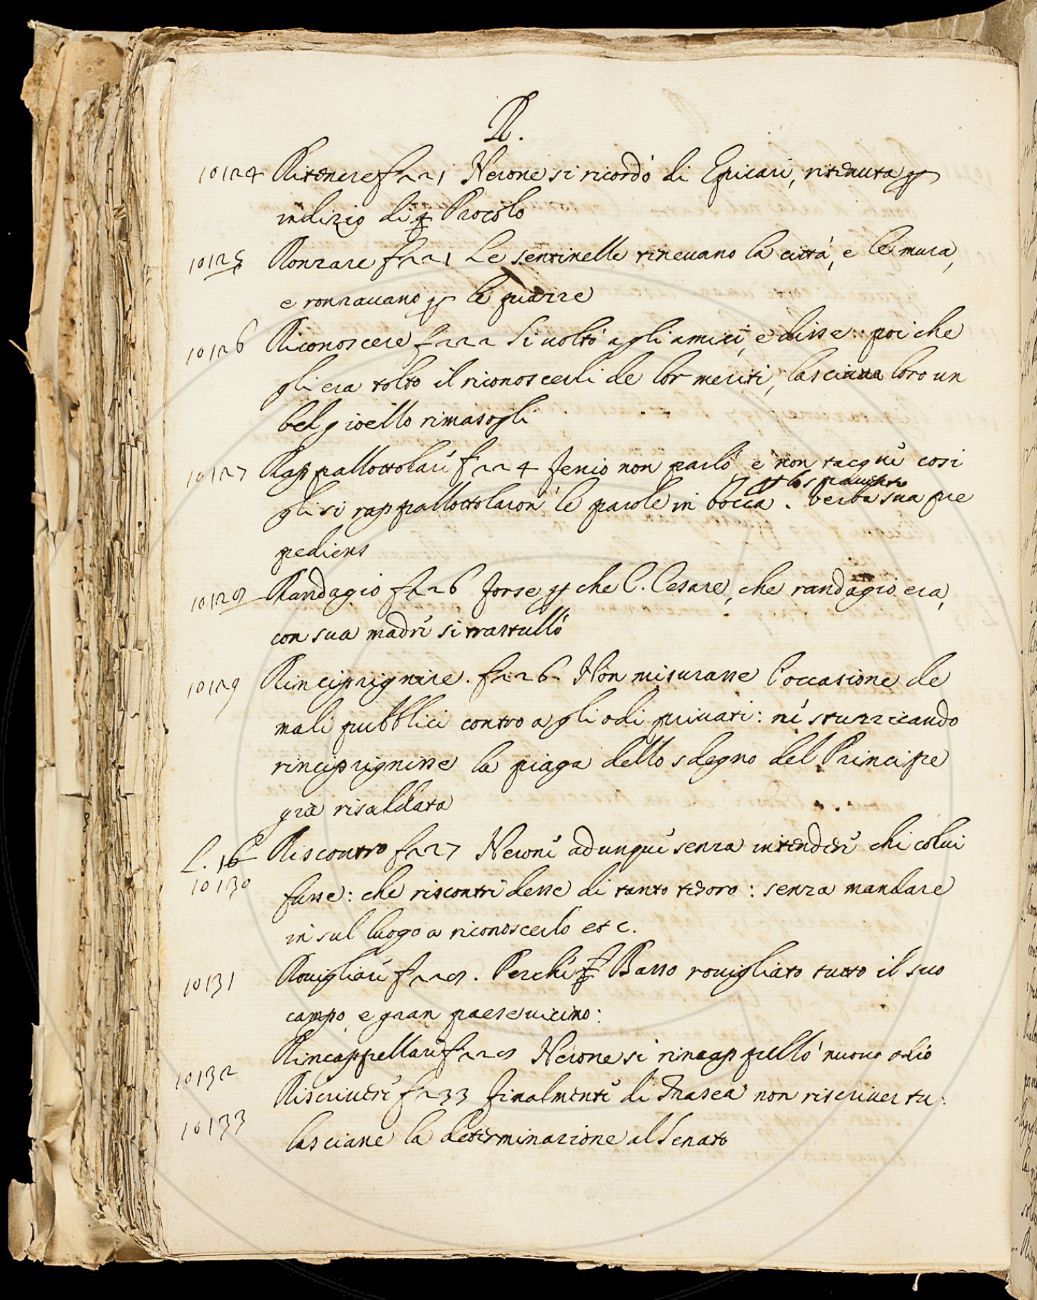 R.
10124 Ritenere f 221 Nerone si ricordò di Epicari, ritenuta ꝑ
indizio di Procolo
10125 Ronzare f 221 Le sentinelle tenevano la città, e le mura,
e ronzavano ꝑ le piazze
10126 Riconoscere f 222 Si voltò agli amici, e disse: poi che
gli era tolto il riconoscerli de lor meriti, lasciava loro un
bel gioello rimasogli
10127 Rappallottolare f 224 Fenio non parlò e non tacque così
ꝑ lo spavento
gli si rappallottolaron le parole in bocca. Verba sua præ
pediens
10128 Randagio f 226 Forse ꝑ che C. Cesare, che randagio era,
con sua madre si trastullò
10129 Rinciprignire. f 226. Non misurasse l'occasione de
mali pubblici contro agli odi privati: nè stuzzicando
rinciprignisse la piaga dello sdegno del Principe
già risaldata
L. 16
10130 Riscontro f 227 Nerone adunque senza intendere chi colui
fusse: che riscontri desse di tanto tesoro: senza mandare
in sul luogo a riconoscerlo et c.
10131 Rovigliare f 228. Perchè Basso rovigliato tutto il suo
campo, e gran paese vicino:
10132 Rincappellare f 229 Nerone si rincappellò nuovo odio
10133 Riscrivere f 233 Finalmente di Trasea non riscriver tu:
lasciane la determinazione al Senato